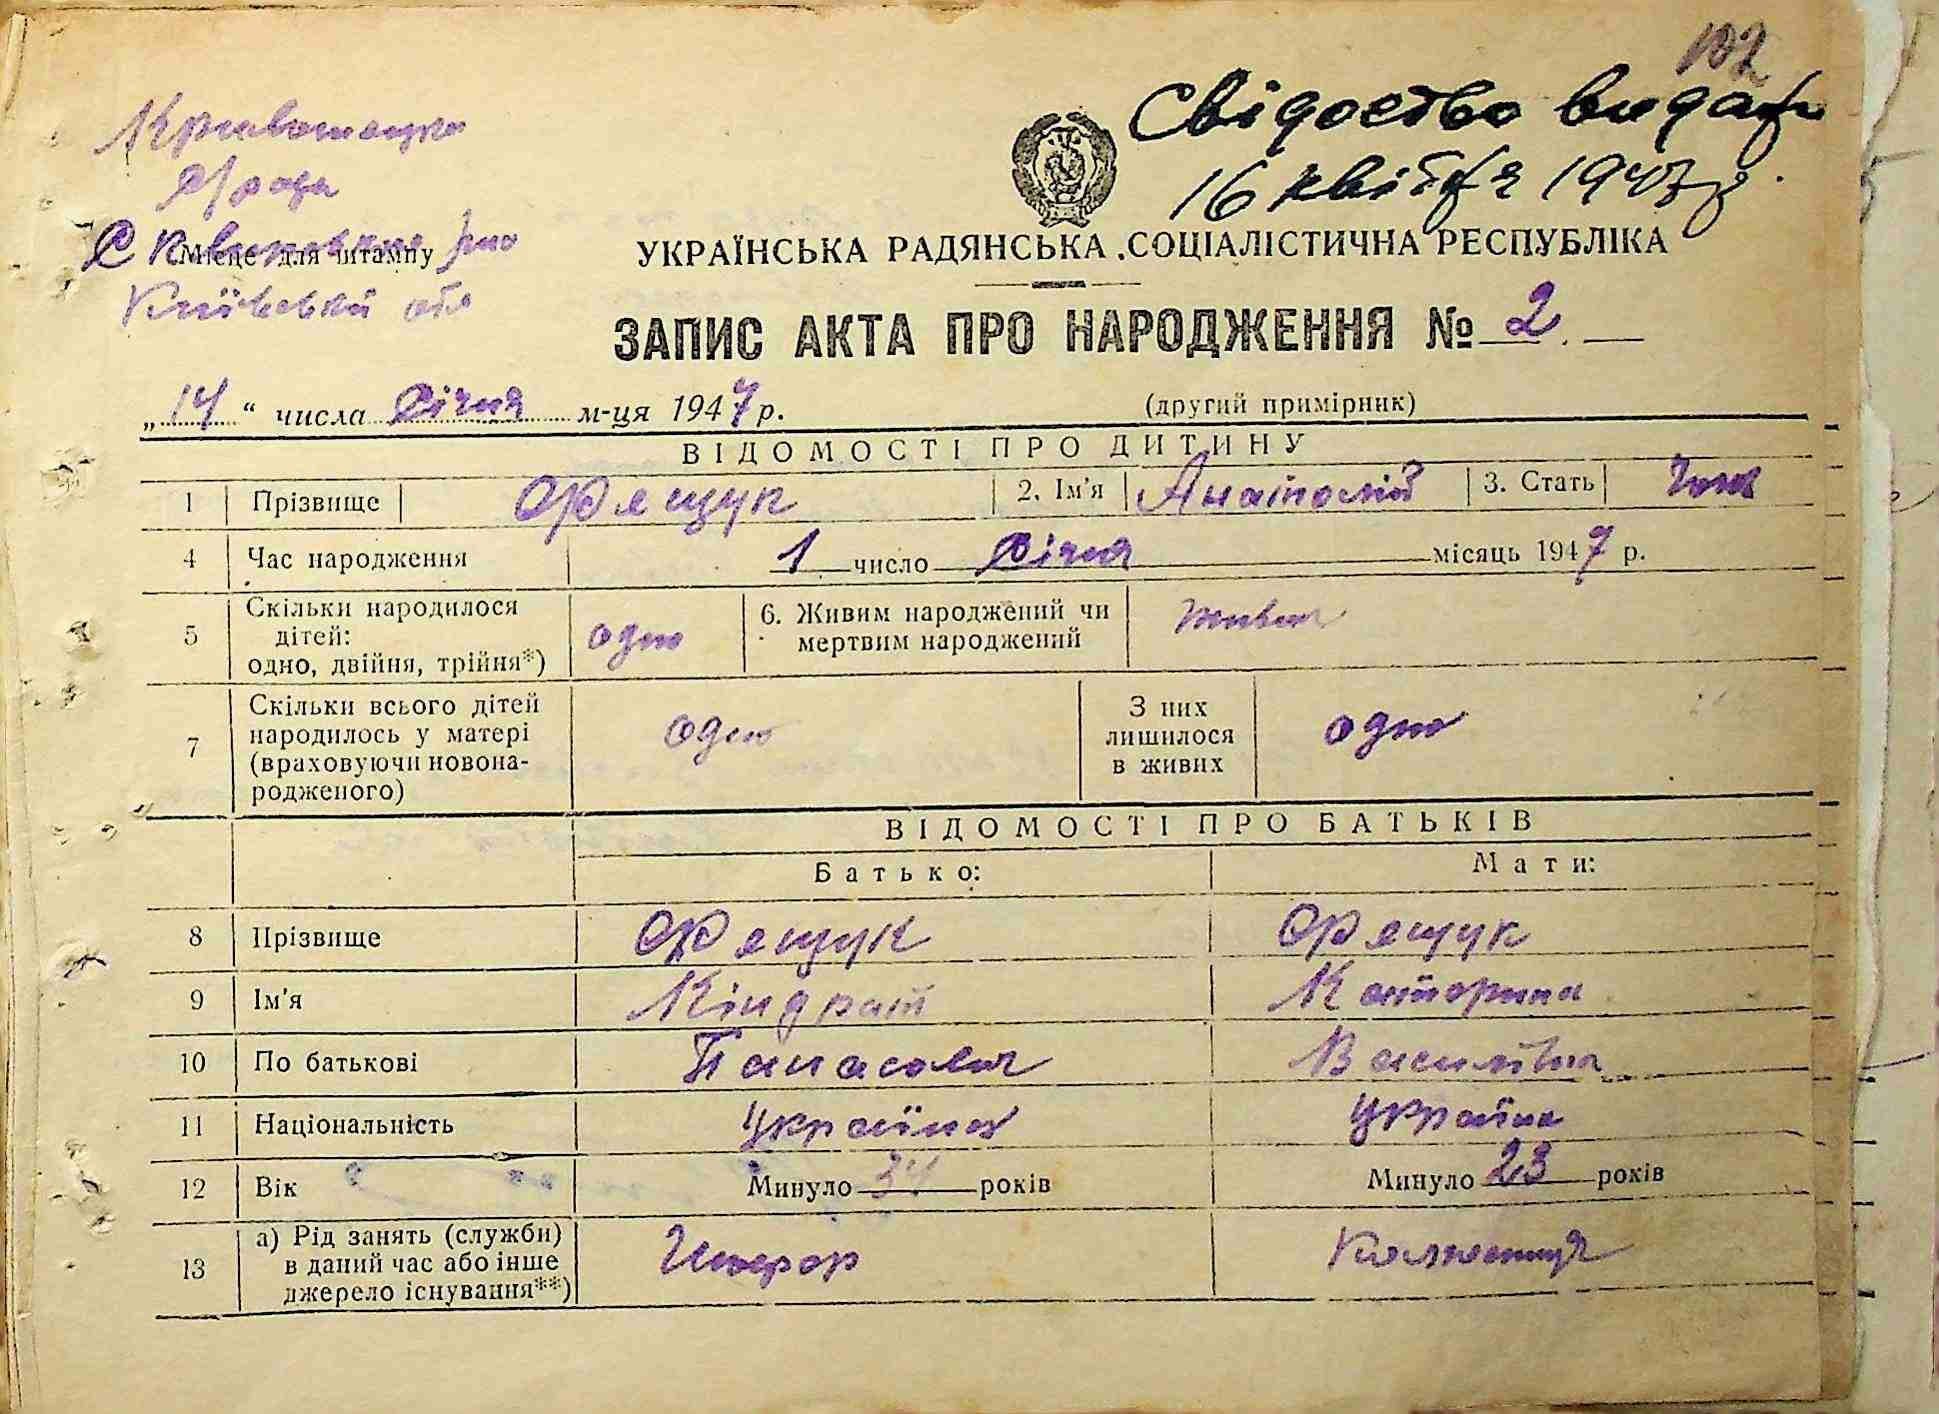 102
Свідоство видано
16 квітня 1947 р.
Кривошеїнська
с/рада
Сквирського р-ну
Місце для штампу
Київської обл
УКРАЇНСЬКА РАДЯНСЬКА СОЦІАЛІСТИЧНА РЕСПУБЛІКА
ЗАПИС АКТА ПРО НАРОДЖЕННЯ № 2
„14“ числа Січня м-ця 1947 р. (другий примірник)
ВІДОМОСТІ ПРО ДИТИНУ
1 Прізвище Фещук 2. Ім'я Анатолій 3. Стать Чол
4 Час народження 1 число Січня місяць 1947 р.
5 Скільки народилося дітей: одно, двійня, трійня*) одно 6. Живим народжений чи мертвим народжений живим
7 Скільки всього дітей народилось у матері (враховуючи новонародженого) одно З них лишилося в живих одно
ВІДОМОСТІ ПРО БАТЬКІВ
Батько: Мати:
8 Прізвище Фещук Фещук
9 Ім'я Кіндрат Каторина
10 По батькові Панасович Василівна
11 Національність Українец Україна
12 Вік Минуло 34 років Минуло 23 років
13 а) Рід занять (служби) в даний час або інше джерело існування**) Шофор Колгосниця